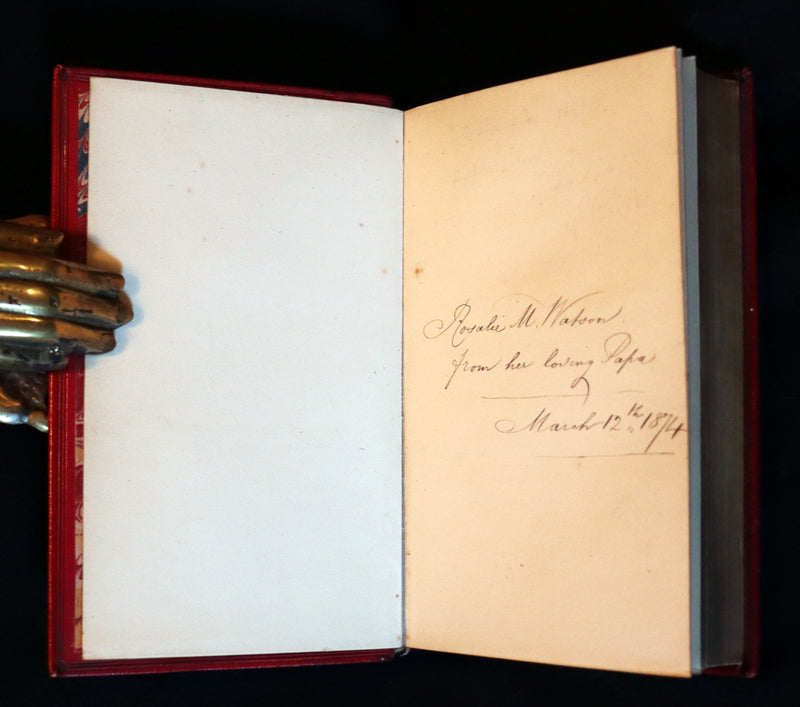 Rosalie M. Watson.
from her loving Papa
March 12th 1874